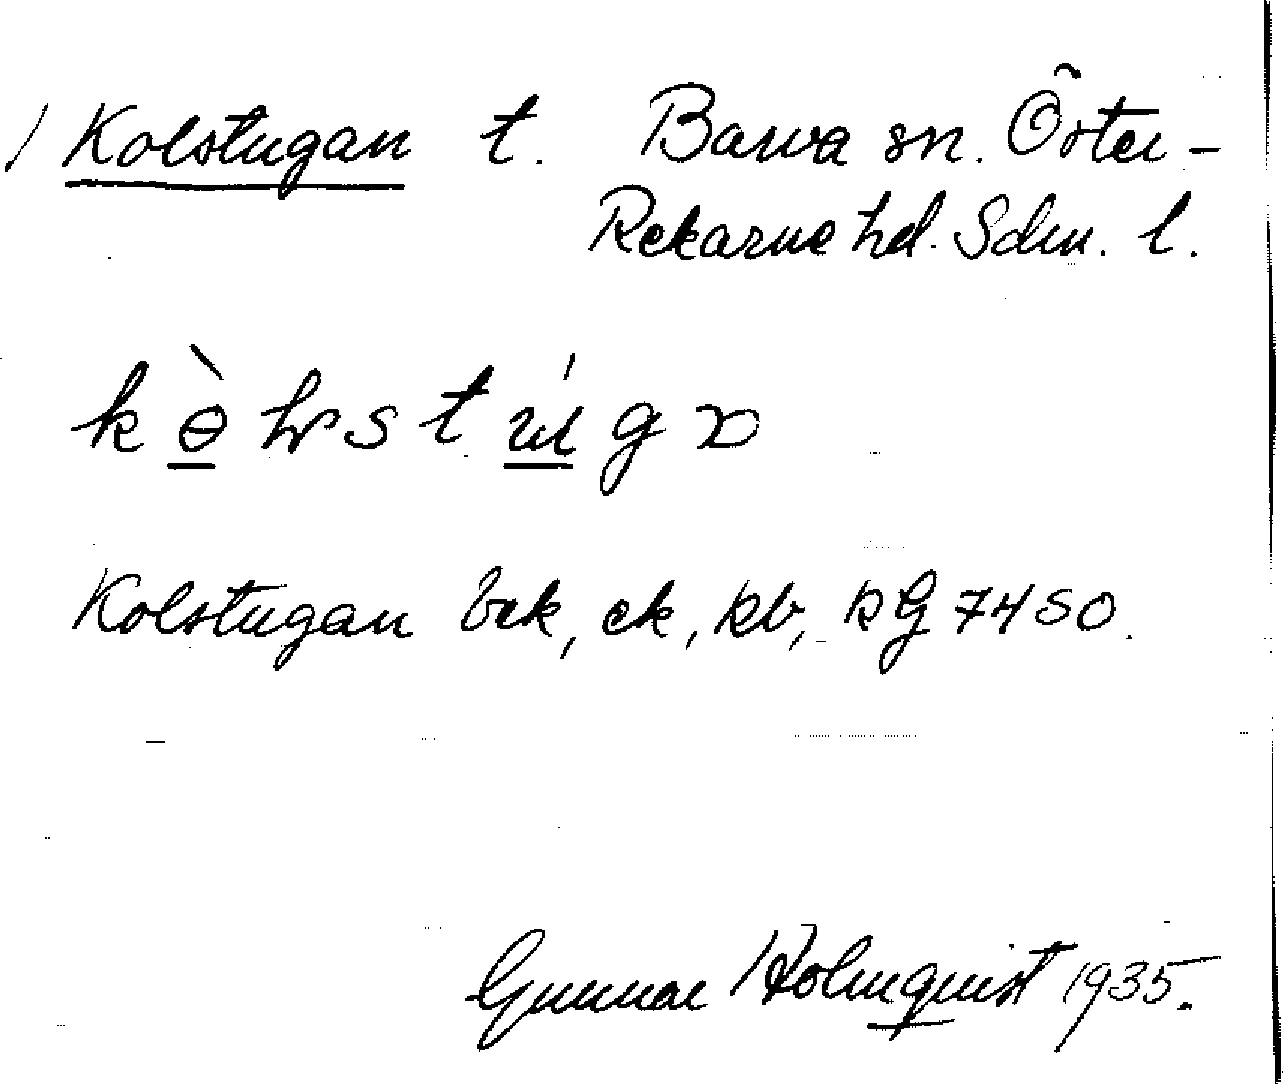 Kolstugan t. Barva sn. Öster-
Rekarne hd. Sdm. l.
Kolstugan bek, ek, kb, kG 7450.
Gunnar Holmquist 1935.